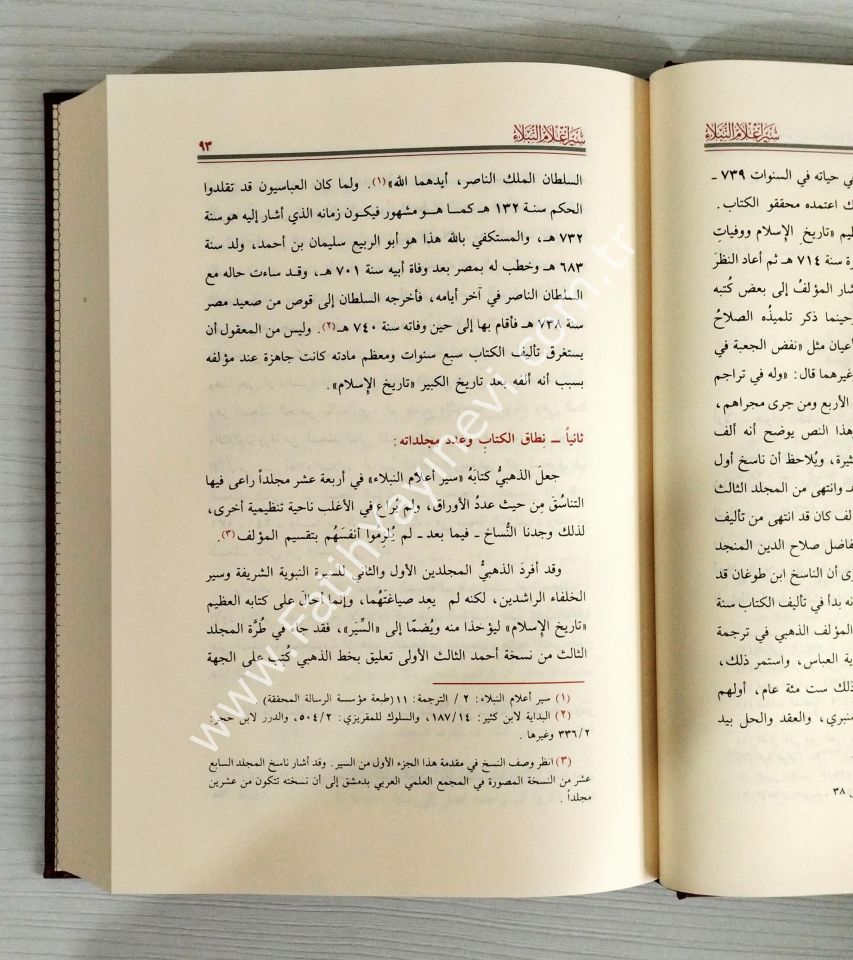 سير أعلام النبلاء
في حياته في السنوات ٧٣٩ ـ
ك اعتمده محققو الكتاب .
ظيم «تاريخ الإسلام ووفيات
رة سنة ٧١٤ هـ ثم أعاد النظرَ
شار المؤلفُ إلى بعض كُتبه
حينما ذكر تلميذُه الصلاحُ
أعيان مثل «نفض الجعبة في
غيرهما قال: «وله في تراجم
الأربع ومن جرى مجراهم،
هذا النص يوضح أنه ألف
ثيرة، ويُلاحظ أن ناسخ أول
وانتهى من المجلد الثالث
لف كان قد انتهى من تأليف
فاضل صلاح الدين المنجد
ى أن الناسخ ابن طوغان قد
نه بدأ في تأليف الكتاب سنة
المؤلف الذهبي في ترجمة
ية العباس، واستمر ذلك،
ذلك ست مئة عام، أولهم
منبري، والعقد والحل بيد
٣٨ .
سير أعلام النبلاء
٩٣
السلطان الملك الناصر، أيدهما الله»(١). ولما كان العباسيون قد تقلدوا
الحكم سنة ١٣٢ هـ كما هو مشهور فيكون زمانه الذي أشار إليه هو سنة
٧٣٢ هـ، والمستكفي بالله هذا هو أبو الربيع سليمان بن أحمد، ولد سنة
٦٨٣ هـ وخطب له بمصر بعد وفاة أبيه سنة ٧٠١ هـ، وقد ساءت حاله مع
السلطان الناصر في آخر أيامه، فأخرجه السلطان إلى قوص من صعيد مصر
سنة ٧٣٨ هـ فأقام بها إلى حين وفاته سنة ٧٤٠ هـ(٢). وليس من المعقول أن
يستغرق تأليف الكتاب سبع سنوات ومعظم مادته كانت جاهزة عند مؤلفه
بسبب أنه ألفه بعد تاريخ الكبير «تاريخ الإسلام».
ثانياً ـ نِطاق الكتابِ وعدد مجلداته:
جعلَ الذهبيُّ كتابَهُ «سير أعلام النبلاء» في أربعة عشر مجلداً راعى فيها
التناسُقَ مِن حيث عددُ الأوراق، ولم يُراعِ في الأغلب ناحية تنظيمية أخرى،
لذلك وجدنا النُّساخ ـ فيما بعد ـ لم يُلزِموا أنفسَهُم بتقسيم المؤلف(٣).
وقد أفردَ الذهبيُّ المجلدين الأول والثاني للسيرة النبوية الشريفة وسير
الخلفاء الراشدين، لكنه لم يعِد صياغتَهُما، وإنما أحالَ على كتابه العظيم
«تاريخ الإسلام» ليؤخذا منه ويُضمّا إلى «السِّيَر»، فقد جاء في طُرَّة المجلد
الثالث من نسخة أحمد الثالث الأولى تعليق بخط الذهبي كُتب على الجهة
(١) سير أعلام النبلاء: ٢ / الترجمة: ١١ (طبعة مؤسسة الرسالة المحققة)
(٢) البداية لابن كثير: ١٨٧/١٤، والسلوك للمقريزي: ٥٠٤/٢، والدرر لابن حجر:
٣٣٦/٢ وغيرها .
(٣) انظر وصف النسخ في مقدمة هذا الجزء الأول من السير. وقد أشار ناسخ المجلد السابع
عشر من النسخة المصورة في المجمع العلمي العربي بدمشق إلى أن نسخته تتكون من عشرين
مجلداً .
www.Fatihyayinevi.com.tr